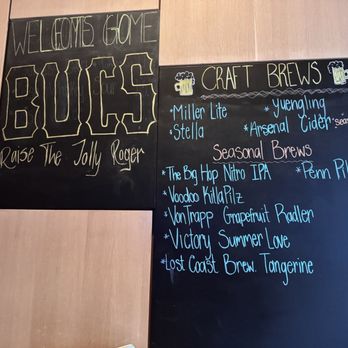 WELCOME HOME
BUCS
Raise The Jolly Roger
CRAFT BREWS
*Miller Lite *Yuengling
*Stella *Arsenal Cider
Seasonal Brews
*The Big Hop Nitro IPA *Penn
*Voodoo KillaPilz
*VonTrapp Grapefruit Radler
*Victory Summer Love
*Lost Coast Brew. Tangerine